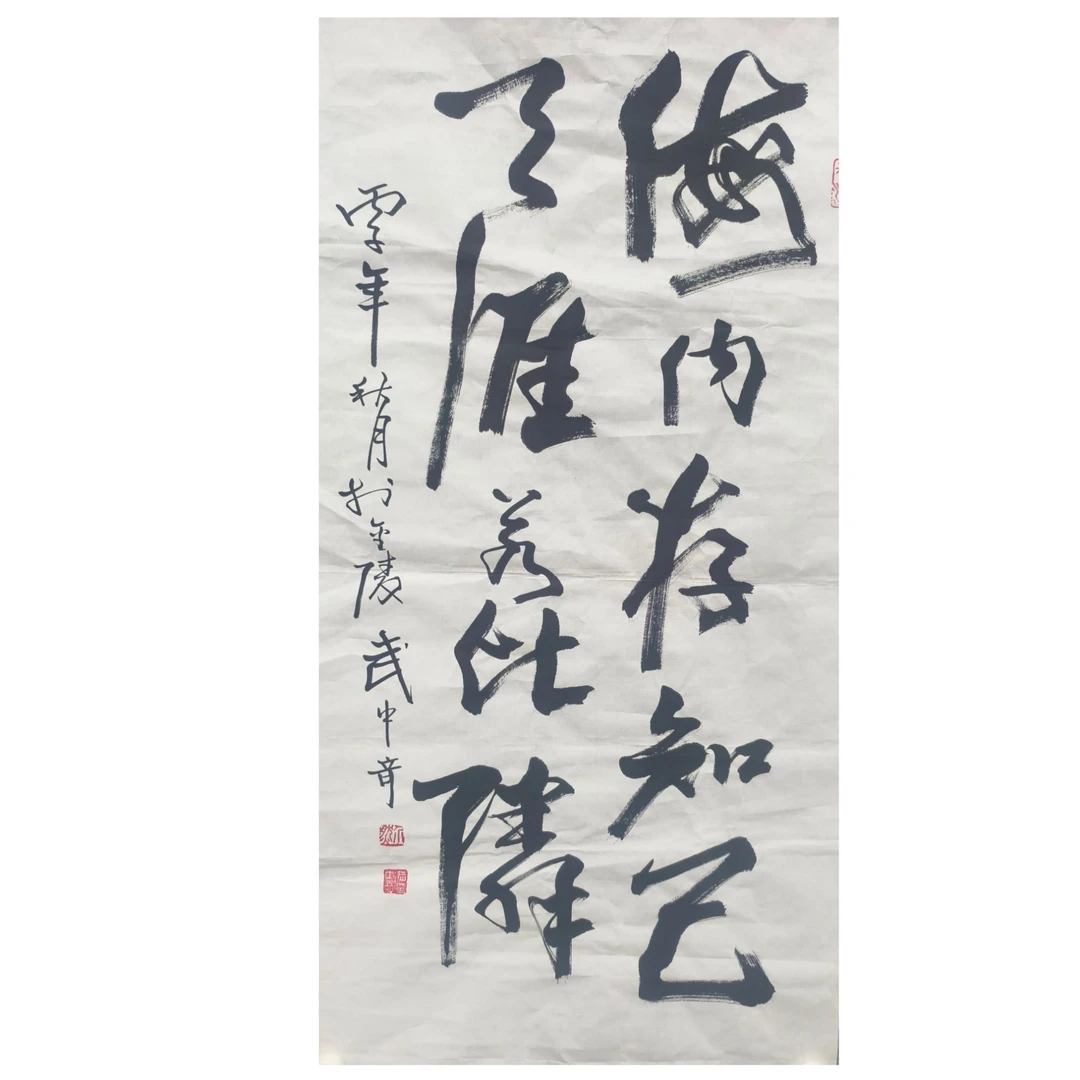 海内存知己
天涯若比隣
丙子年秋月於金陵武中奇